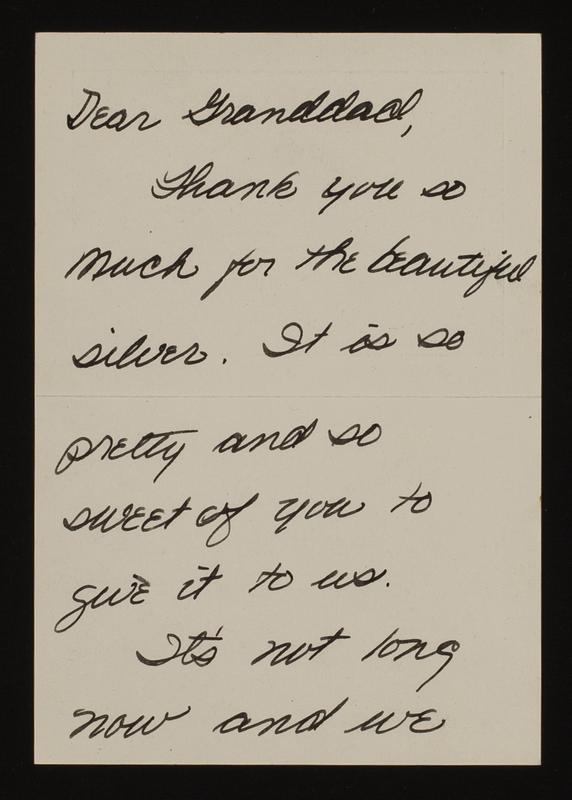 Dear Granddad,
Thank you so
much for the beautiful
silver. It is so
pretty and so
sweet of you to
give it to us.
It's not long
now and we